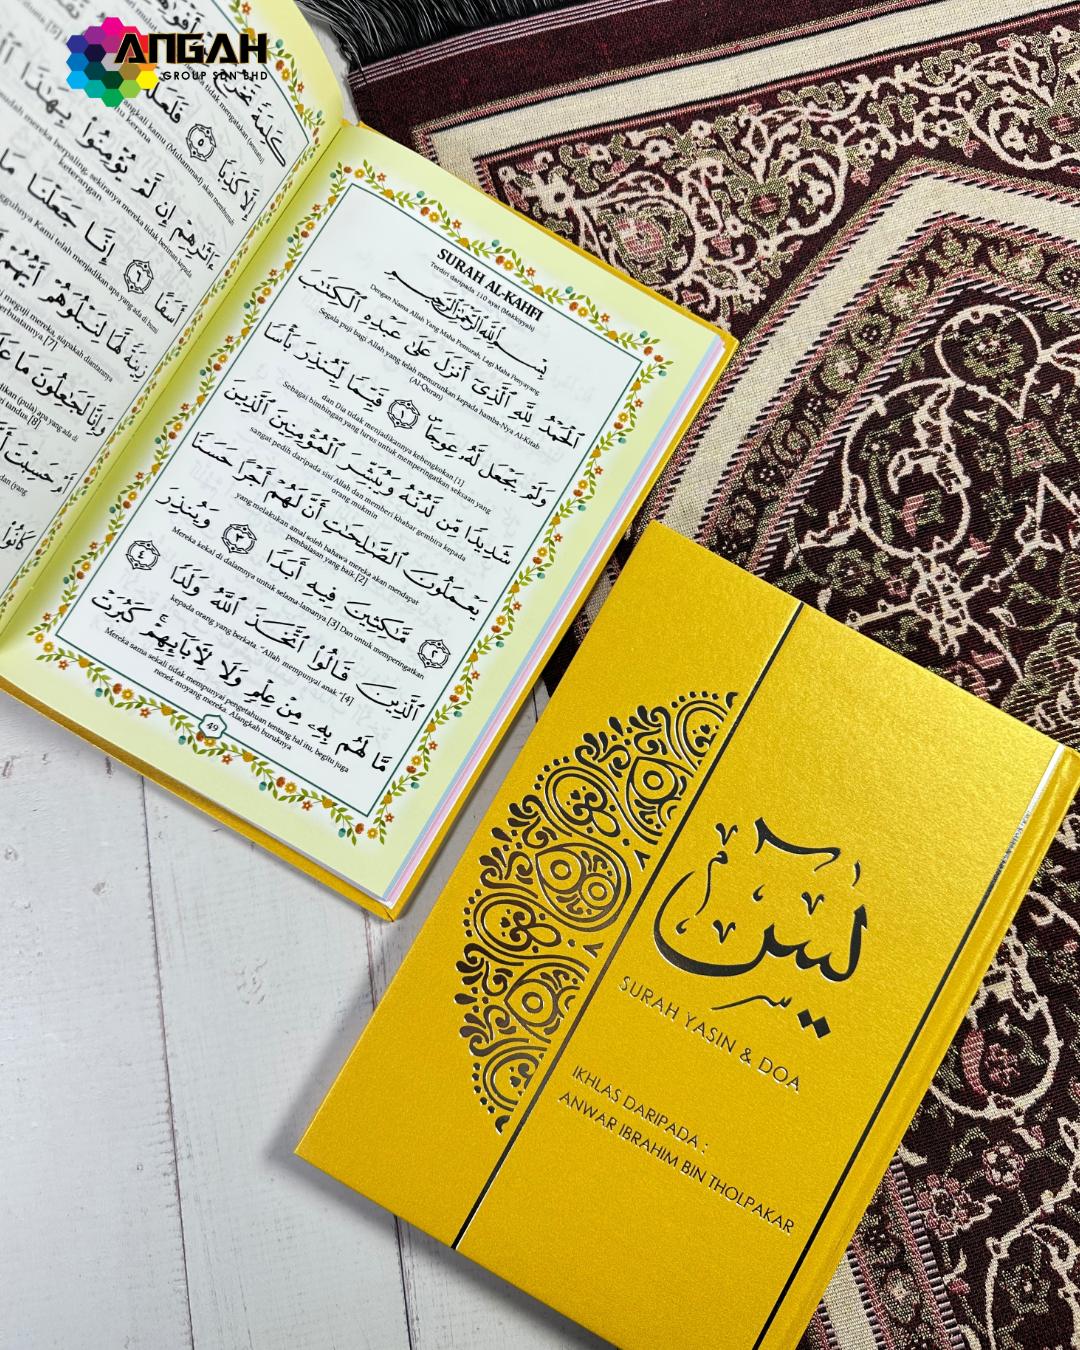 ANGAH
GROUP SDN BHD
إِلَّا كَذِبًا ٥ فَلَعَلَّكَ
إِن لَّمْ يُؤْمِنُوا۟ بِهَٰذَا
keterangan
أَسَفًا ٦ إِنَّا جَعَلْنَا مَا
زِينَةً لَّهَا لِنَبْلُوَهُمْ أَيُّهُمْ
وَإِنَّا لَجَٰعِلُونَ مَا
SURAH AL-KAHFI
Terdiri daripada 110 ayat (Makkiyyah)
بِسْمِ ٱللَّهِ ٱلرَّحْمَٰنِ ٱلرَّحِيمِ
Dengan Nama Allah Yang Maha Pemurah, Lagi Maha Penyayang
ٱلْحَمْدُ لِلَّهِ ٱلَّذِىٓ أَنزَلَ عَلَىٰ عَبْدِهِ ٱلْكِتَٰبَ
Segala puji bagi Allah yang telah menurunkan kepada hamba-Nya Al-Kitab
(Al-Quran)
وَلَمْ يَجْعَل لَّهُۥ عِوَجَاۜ ١ قَيِّمًا لِّيُنذِرَ بَأْسًا
dan Dia tidak menjadikannya kebengkokan [1]
Sebagai bimbingan yang lurus untuk memperingatkan seksaan yang
شَدِيدًا مِّن لَّدُنْهُ وَيُبَشِّرَ ٱلْمُؤْمِنِينَ ٱلَّذِينَ
sangat pedih daripada sisi Allah dan memberi khabar gembira kepada
orang mukmin
يَعْمَلُونَ ٱلصَّٰلِحَٰتِ أَنَّ لَهُمْ أَجْرًا حَسَنًا
yang melakukan amal soleh bahawa mereka akan mendapat
pembalasan yang baik [2]
٢ مَّٰكِثِينَ فِيهِ أَبَدًا ٣ وَيُنذِرَ
Mereka kekal di dalamnya untuk selama-lamanya [3] Dan untuk memperingatkan
ٱلَّذِينَ قَالُوا۟ ٱتَّخَذَ ٱللَّهُ وَلَدًا ٤
kepada orang yang berkata, "Allah mempunyai anak." [4]
مَّا لَهُم بِهِۦ مِنْ عِلْمٍ وَلَا لِءَابَآئِهِمْ ۚ كَبُرَتْ
Mereka sama sekali tidak mempunyai pengetahuan tentang hal itu, begitu juga
nenek moyang mereka. Alangkah buruknya
49
يس
SURAH YASIN & DOA
IKHLAS DARIPADA :
ANWAR IBRAHIM BIN THOLPAKAR